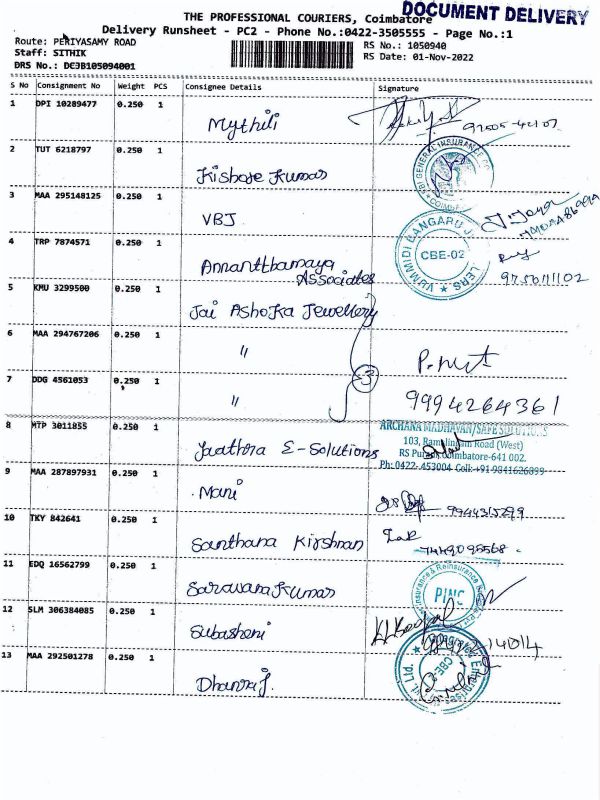 THE PROFESSIONAL COURIERS, Coimbatore
DOCUMENT DELIVERY
Delivery Runsheet - PC2 - Phone No.:0422-3505555 - Page No.:1
Route: PERIYASAMY ROAD
RS No.: 1050940
Staff: SITHIK
RS Date: 01-Nov-2022
DRS No.: DE3B105094001
S No Consignment No Weight PCS Consignee Details Signature
1 DPI 10289477 0.250 1
Mythili
2 TUT 6218797 0.250 1
Kishore Kumar
SBI GENERAL INSURANCE CO
3 MAA 295148125 0.250 1
VBJ
4 TRP 7874571 0.250 1
Annanthbamaya
Associates
VUMMIDI BANGARU
CBE-02
5 KMU 3299500 0.250 1
Jai Ashoka Jewellery
6 MAA 294767206 0.250 1
"
7 DDG 4561053 0.250 1
"
3
9994264361
8 MTP 3011855 0.250 1
Jaathra E-Solutions
ARCHANA MADHAVAN/SAFE SOLUTIONS
103, Ramalingam Road (West)
RS Puram, Coimbatore-641 002.
Ph: 0422-453004 Cell: +91-9841626899
9 MAA 287897931 0.250 1
Mani
10 TKY 842641 0.250 1
Santhana Kirshnan
7449095568
11 EDQ 16562799 0.250 1
Saravana Kumar
PINC
12 SLM 306384085 0.250 1
Subashini
13 MAA 292501278 0.250 1
Dhanraj.